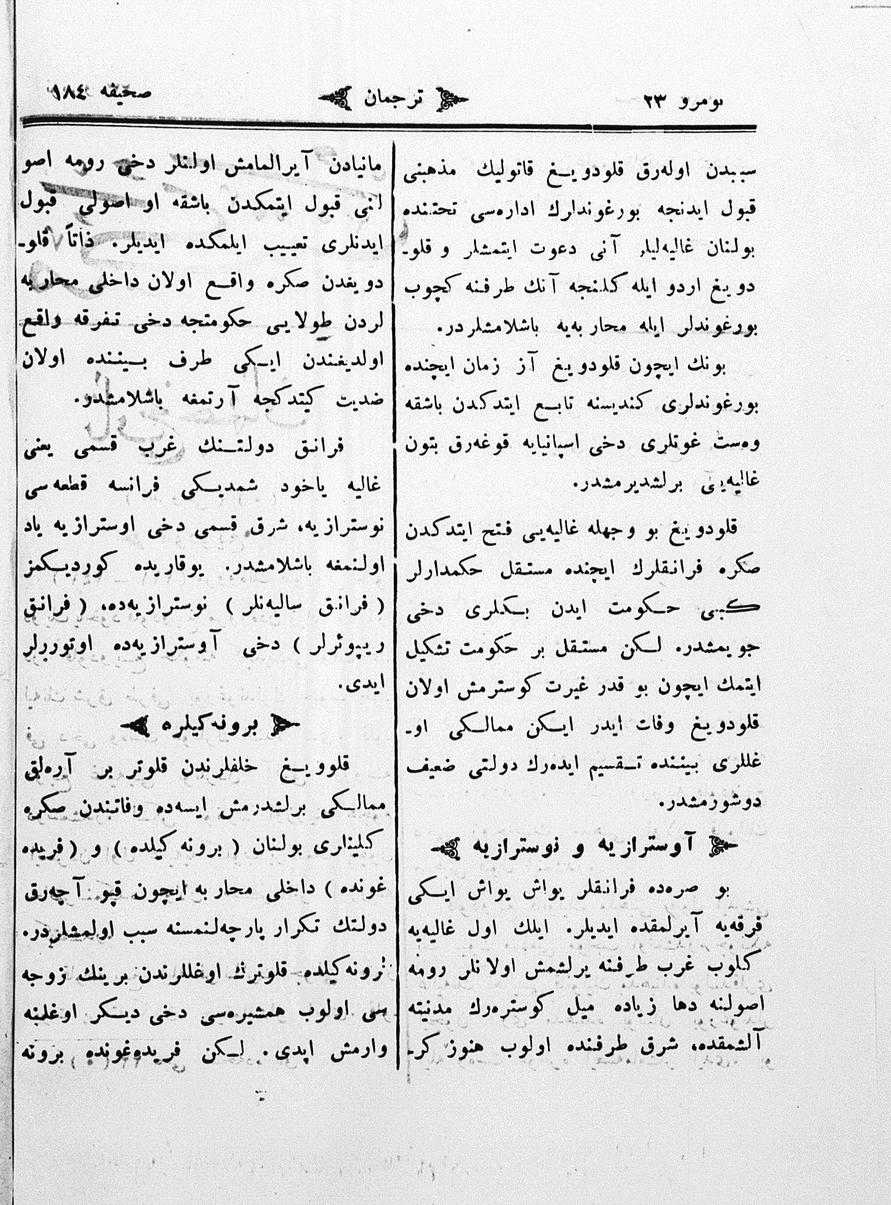 نومرو ٢٣
ترجمان
صحيفه ١٨٤
سببدن اوله‌رق قلودويغ قاتوليك مذهبنى
قبول ايدنجه بورغوندلرك اداره‌سى تحتنده
بولنان غاليه‌ليلر آنى دعوت ايتمشلر و قلو-
دويغ اردو ايله كلنجه آنك طرفنه كچوب
بورغوندلر ايله محاربه‌يه باشلامشلردر.
بونك ايچون قلودويغ آز زمان ايچنده
بورغوندلرى كنديسنه تابع ايتدكدن باشقه
وه‌ست غوتلرى دخى اسپانيايه قوغه‌رق بتون
غاليه‌يى برلشديرمشدر.
قلودويغ بو وجهله غاليه‌يى فتح ايتدكدن
صكره فرانقلرك ايچنده مستقل حكمدارلر
كبى حكومت ايدن بكلرى دخى
جويمشدر. لكن مستقل بر حكومت تشكيل
ايتمك ايچون بو قدر غيرت كوسترمش اولان
قلودويغ وفات ايدر ايكن ممالكى او-
غللرى بيننده تقسيم ايده‌رك دولتى ضعيف
دوشورمشدر.
آوسترازيه و نوسترازيه
بو صره‌ده فرانقلر يواش يواش ايكى
فرقه‌يه آيرلمقده ايديلر. ايلك اول غاليه‌يه
كلوب غرب طرفنه يرلشمش اولانلر رومه
اصولنه دها زياده ميل كوستره‌رك مدنيته
آلشمقده، شرق طرفنده اولوب هنوز كر-
مانيادن آيرالمامش اولنلر دخى رومه اصو
لنى قبول ايتمكدن باشقه او اصولى قبول
ايدنلرى تعييب ايلمكده ايديلر. ذاتاً قلو-
دويغدن صكره واقع اولان داخلى محاربه
لردن طولايى حكومتجه دخى تفرقه واقع
اولديغندن ايكى طرف بيننده اولان
ضديت كيتدكجه آرتمغه باشلامشدو.
فرانق دولتنك غرب قسمى يعنى
غاليه ياخود شمديكى فرانسه قطعه‌سى
نوسترازيه، شرق قسمى دخى اوسترازيه ياد
اولنمغه باشلامشدر. يوقاريده كورديكمز
( فرانق ساليه‌نلر ) نوسترازيه‌ده، ( فرانق
ريپوئرلر ) دخى آوسترازيه‌ده اوتورر‌لر
ايدى.
برونه‌كيلره
قلوويغ خلفلرندن قلوتر بر آره‌لق
ممالكى برلشدرمش ايسه‌ده وفاتندن صكره
كلينلرى بولنان ( برونه‌كيلده ) و ( فريده
غونده ) داخلى محاربه ايچون قپو آچه‌رق
دولتك تكرار پارچه‌لنمسنه سبب اولمشلردر.
برونه‌كيلده قلوترك اوغللرندن برينك زوجه
سى اولوب همشيره‌سى دخى ديكر اوغلنه
وارمش ايدى. لكن فريده‌غونده برونه